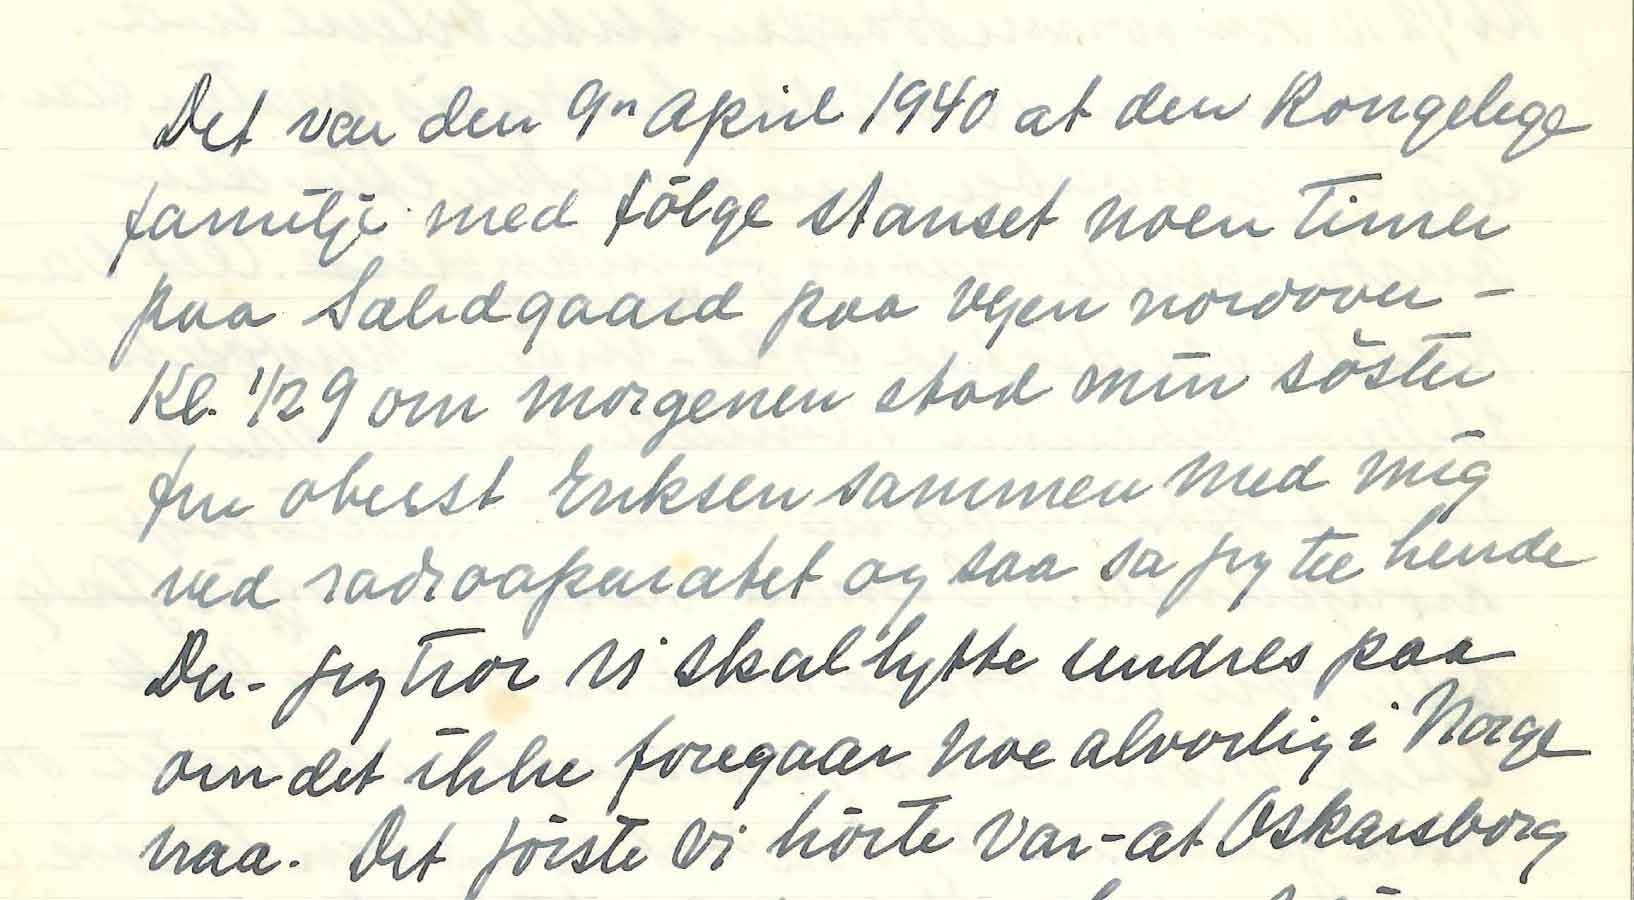 Det var den 9n April 1940 at den Kongelege
familje med fölge stanset noen timer
paa Sælidgaard paa vejen nordover -
Kl. 1/2 9 om morgenen stod min söster
fru oberst Eriksen sammen med mig
ved radioaparatet og saa sa jeg til hende
Du - jeg tror vi skal lytte undres paa
om det ikke foregaar noe alvorlig i Norge
naa. Det förste vi hörte var - at Oskarsborg